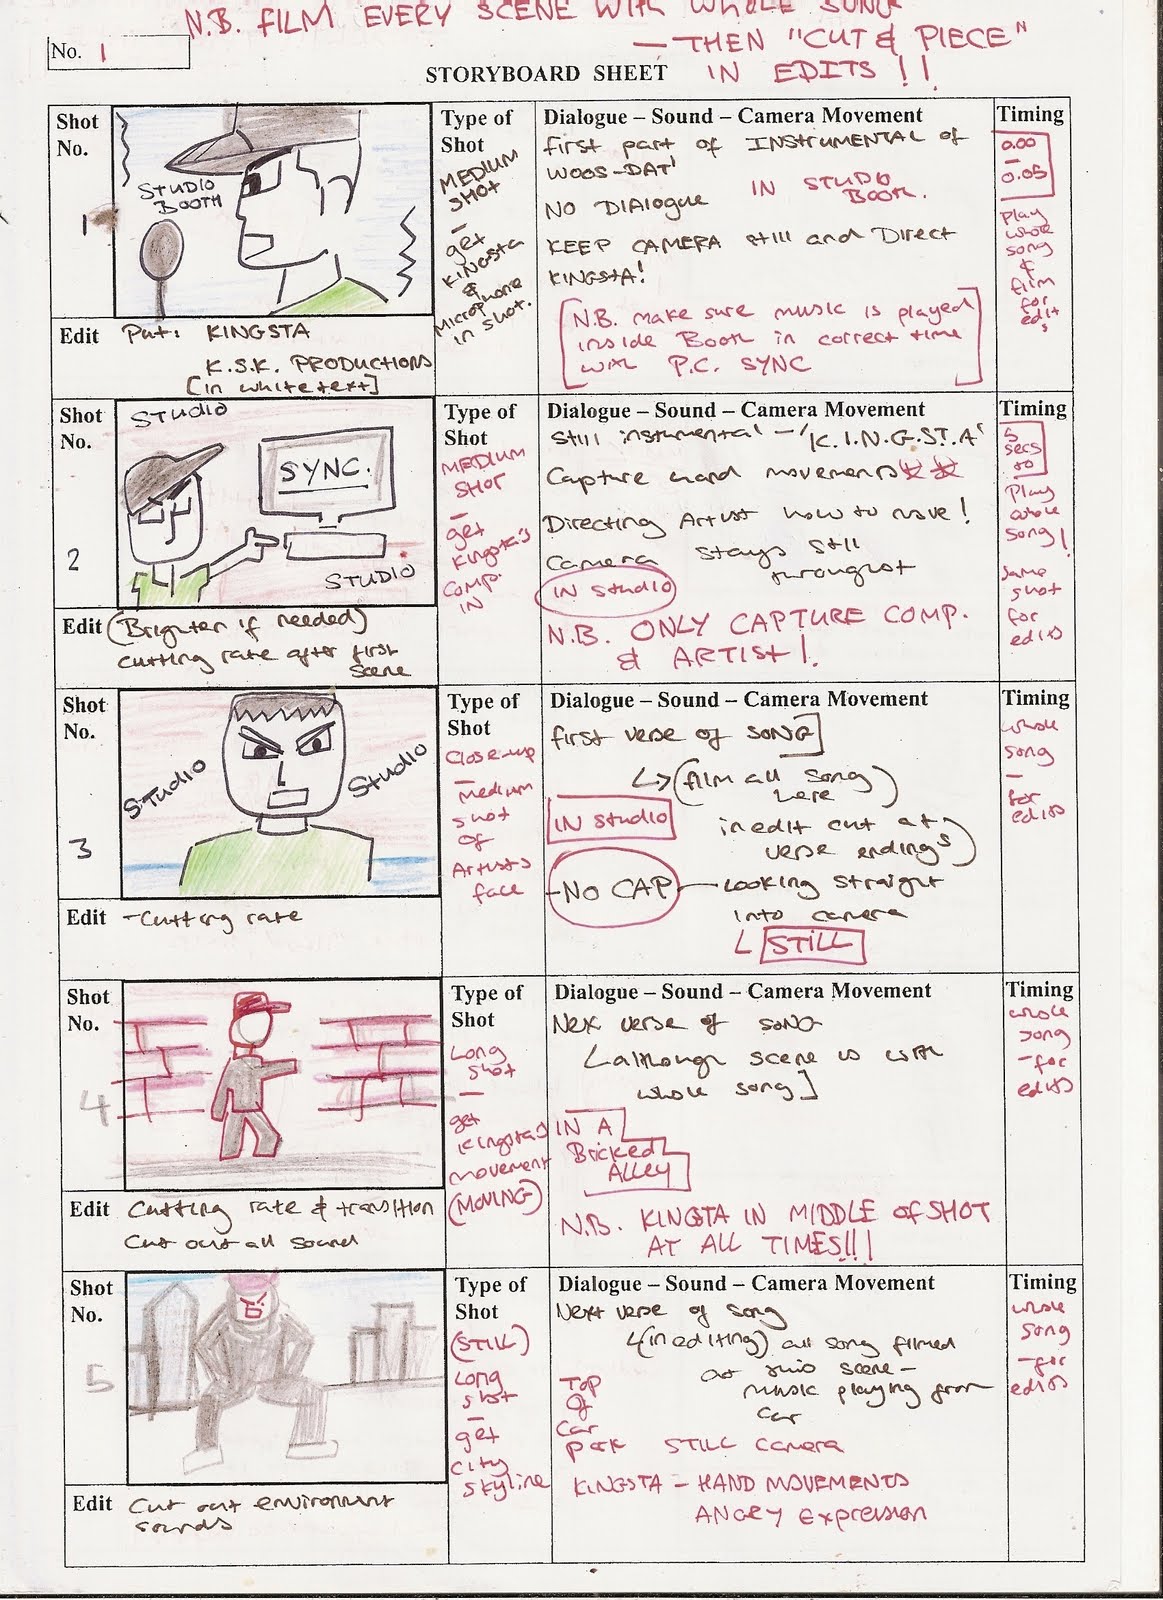 N.B. FILM EVERY SCENE WITH WHOLE SONG
— THEN "CUT & PIECE"
IN EDITS !!
No. 1
STORYBOARD SHEET
Shot
No.
1
STUDIO
BOOTH
Type of
Shot
MEDIUM
SHOT
—
get
KINGSTA
&
Microphone
in shot.
Dialogue – Sound – Camera Movement
first part of INSTRUMENTAL of
'WOOS-DAT'
NO DIALOGUE
IN STUDIO
BOOTH.
KEEP CAMERA still and Direct
KINGSTA!
[N.B. make sure music is played
inside Booth in correct time
with P.C. SYNC]
Timing
0.00
–
0.05
play
whole
song
&
film
for
edits
Edit Put: KINGSTA
K.S.K. PRODUCTIONS
[in white text]
Shot
No.
2
STUDIO
SYNC.
STUDIO
Type of
Shot
MEDIUM
SHOT
—
get
Kingsta's
comp.
IN
Dialogue – Sound – Camera Movement
Still instumental – 'K.I.N.G.S.T.A'
Capture hand movements
Directing Artist how to move!
Camera stays still
throughout
IN Studio
N.B. ONLY CAPTURE COMP.
& ARTIST!.
Timing
5
secs
Play
whole
song!
same
shot
for
edits
Edit (Brighter if needed)
cutting rate after first
scene
Shot
No.
3
STUDIO
Studio
Type of
Shot
Close-up
—
medium
shot
of
Artists
face
Dialogue – Sound – Camera Movement
first verse of SONG]
↳ (film all song
here)
IN Studio
in edit cut at
verse endings)
NO CAP — Looking Straight
into camera
STILL
Timing
whole
song
–
for
edits
Edit – Cutting rate
Shot
No.
4
Type of
Shot
Long
shot
—
get
Kingsta's
movement
(MOVING)
Dialogue – Sound – Camera Movement
Next verse of SONG
[although scene is with
whole song]
IN A
Bricked
Alley
N.B. KINGSTA IN MIDDLE of SHOT
AT ALL TIMES!!!
Timing
whole
song
– for
edits
Edit Cutting rate & transition
Cut out all sound
Shot
No.
5
Type of
Shot
(STILL)
Long
shot
—
get
city
skyline
Dialogue – Sound – Camera Movement
Next verse of song
↳ (in editing) all song filmed
at this scene –
music playing from
car
Top
Of
Car
Park
STILL Camera
KINGSTA – HAND MOVEMENTS
ANGRY Expression
Timing
whole
song
– for
edits
Edit Cut out environment
sounds